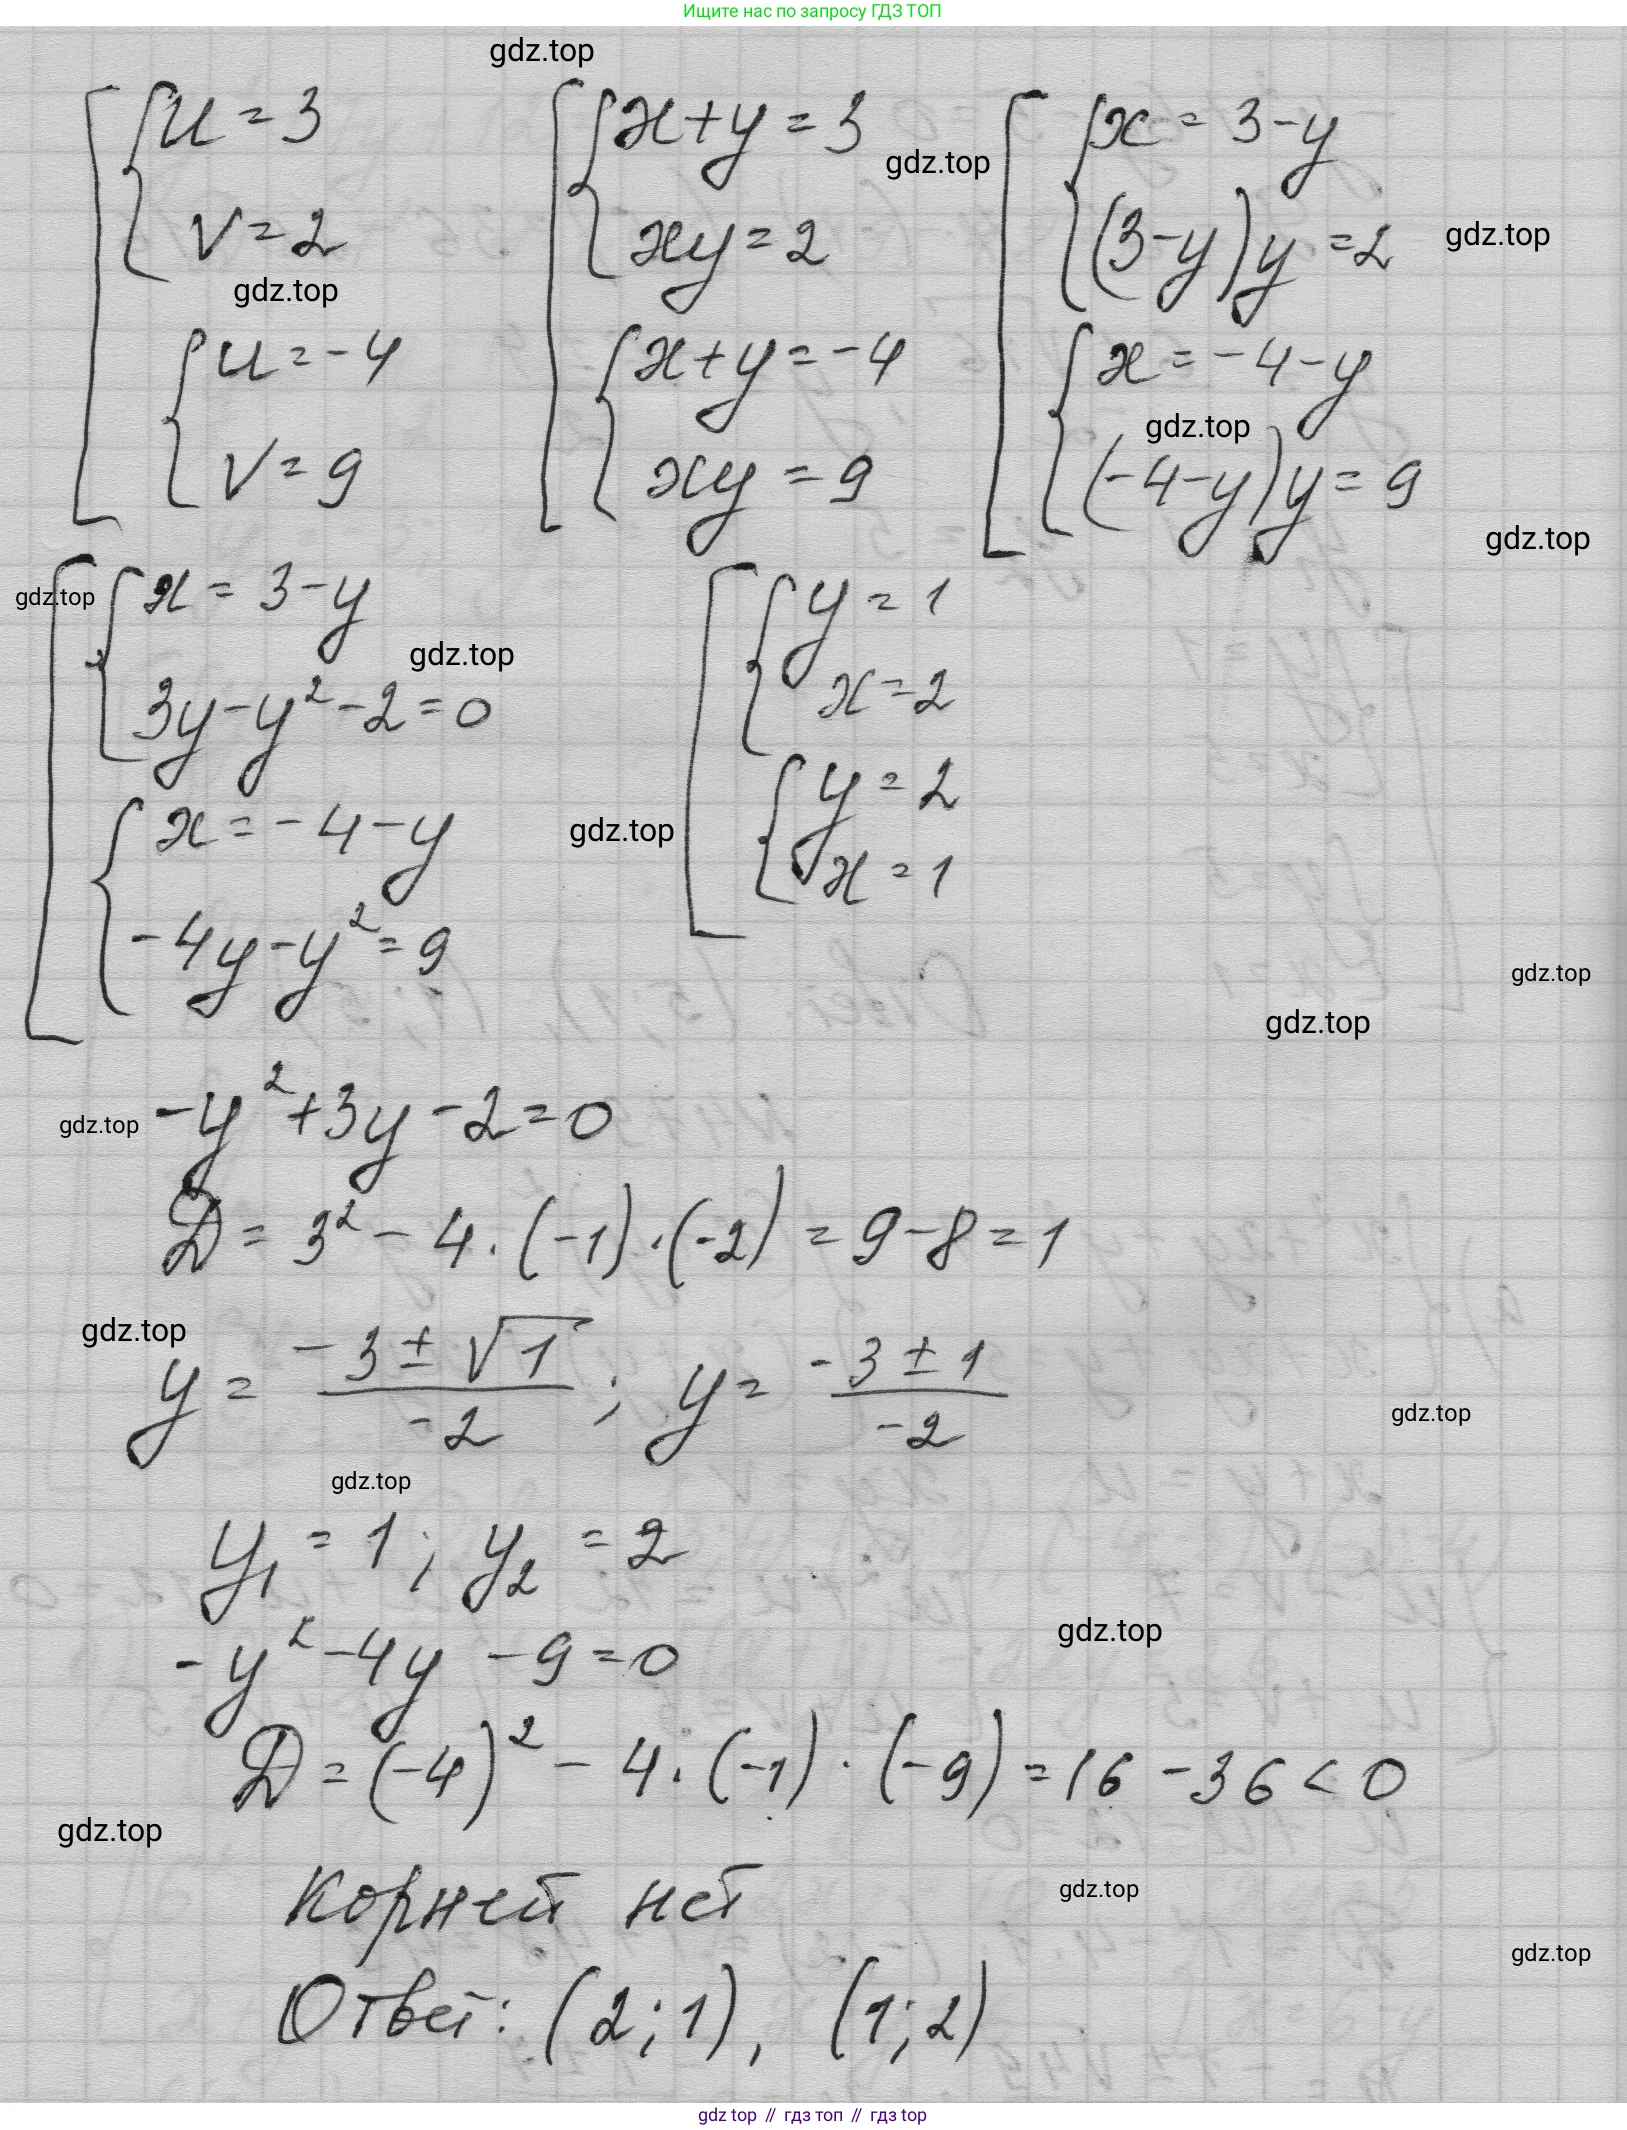 Ищите нас по запросу ГДЗ ТОП
gdz.top
u = 3
v = 2
gdz.top
u = -4
v = 9
x + y = 3
xy = 2
x + y = -4
xy = 9
gdz.top
x = 3 - y
(3 - y)y = 2
gdz.top
x = -4 - y
gdz.top
(-4 - y)y = 9
gdz.top
gdz.top
x = 3 - y
gdz.top
3y - y² - 2 = 0
x = -4 - y
-4y - y² = 9
y = 1
x = 2
gdz.top
y = 2
x = 1
gdz.top
gdz.top
gdz.top
-y² + 3y - 2 = 0
D = 3² - 4 · (-1) · (-2) = 9 - 8 = 1
gdz.top
y = (-3 ± √1)/(-2) ; y = (-3 ± 1)/(-2)
gdz.top
gdz.top
y₁ = 1 ; y₂ = 2
gdz.top
-y² - 4y - 9 = 0
D = (-4)² - 4 · (-1) · (-9) = 16 - 36 < 0
gdz.top
корней нет
gdz.top
gdz.top
Ответ: (2; 1), (1; 2)
gdz top // гдз топ // гдз top